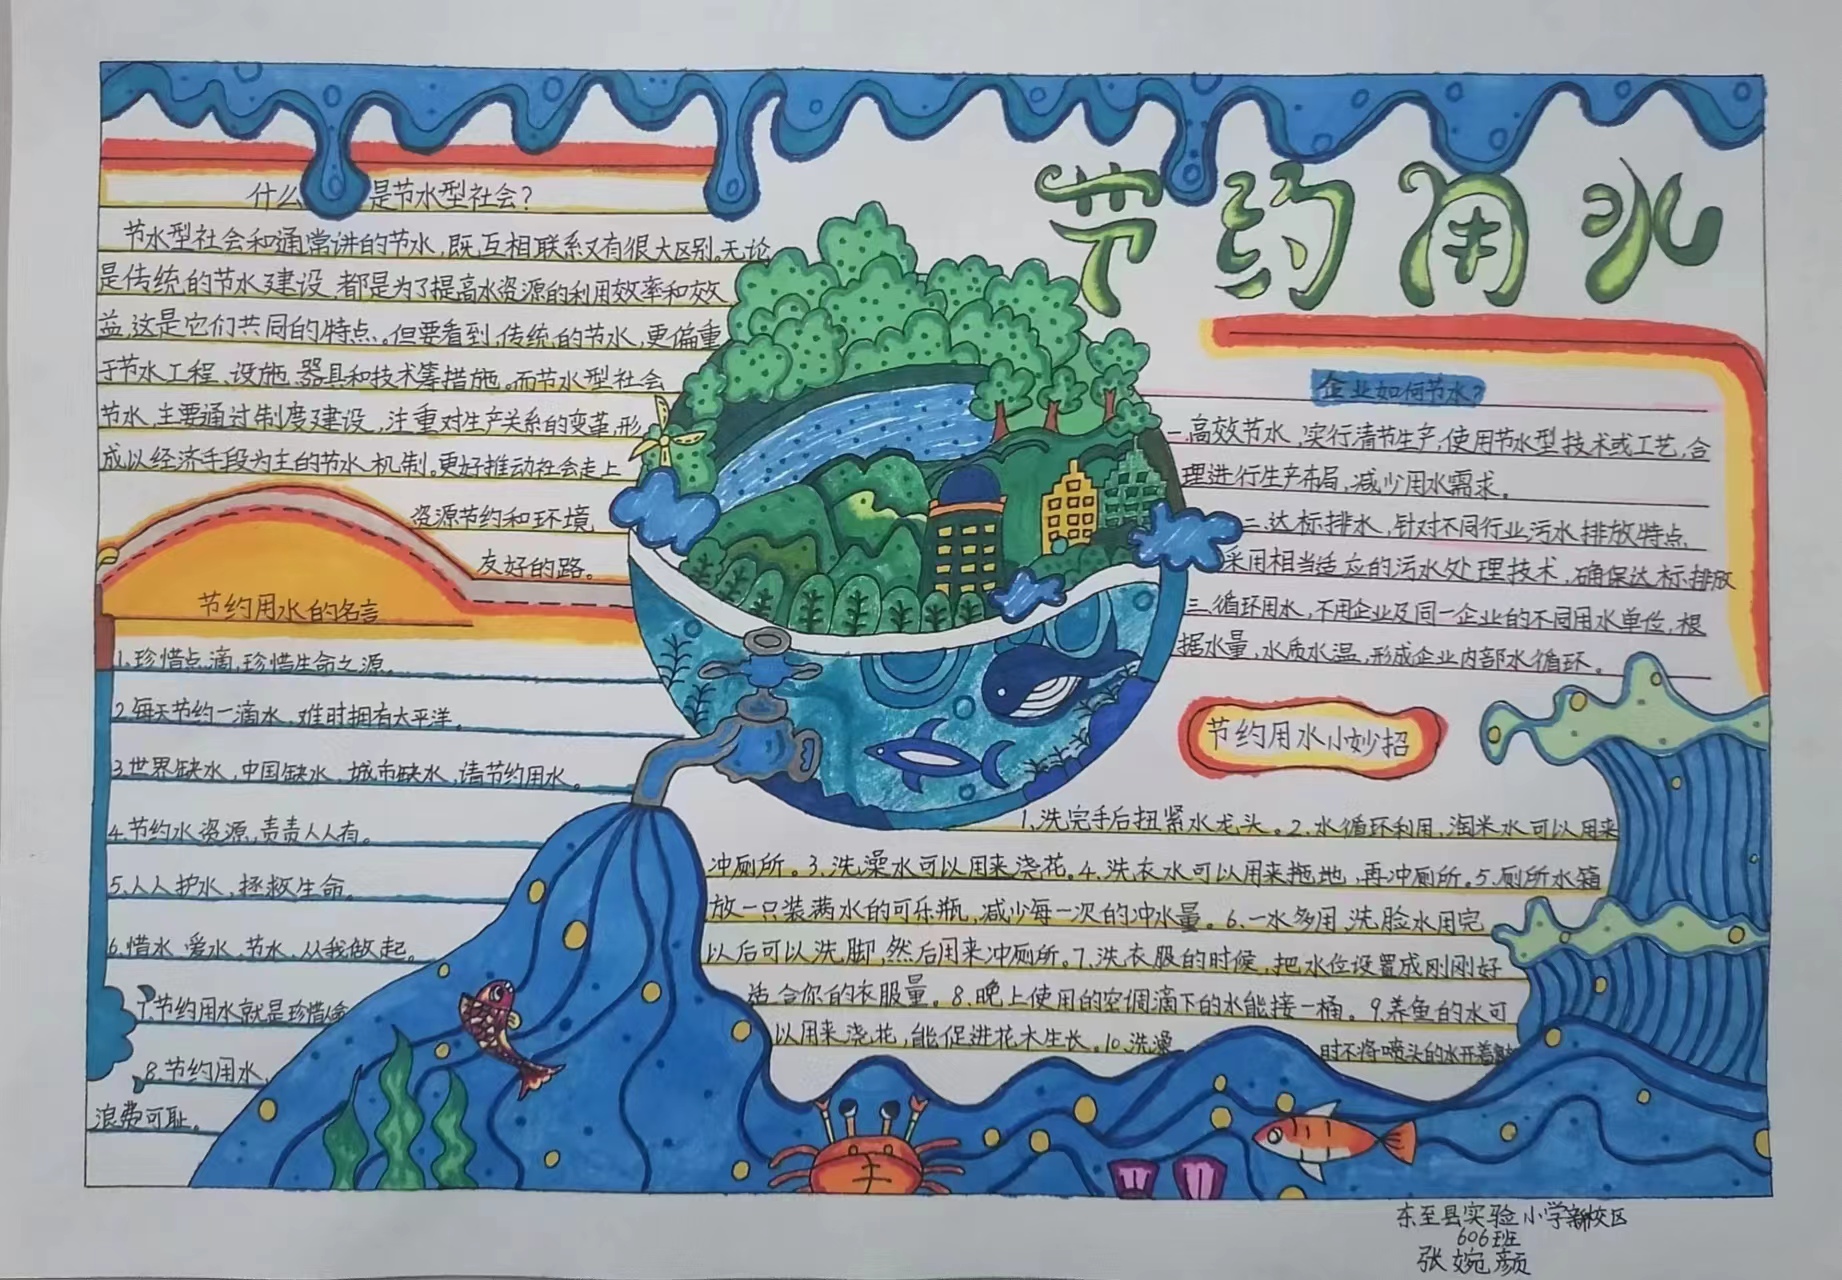 节约用水
什么是节水型社会？
节水型社会和通常讲的节水，既互相联系又有很大区别。无论
是传统的节水建设，都是为了提高水资源的利用效率和效
益，这是它们共同的特点。但要看到，传统的节水，更偏重
于节水工程、设施、器具和技术等措施。而节水型社会
节水，主要通过制度建设，注重对生产关系的变革，形
成以经济手段为主的节水机制。更好推动社会走上
资源节约和环境
友好的路。
节约用水的名言
1.珍惜点滴，珍惜生命之源。
2.每天节约一滴水，难时拥有太平洋。
3.世界缺水，中国缺水，城市缺水，请节约用水。
4.节约水资源，责责人人有。
5.人人护水，拯救生命。
6.惜水、爱水、节水，从我做起。
7.节约用水就是珍惜
8.节约用水，
浪费可耻。
企业如何节水？
一.高效节水，实行清节生产，使用节水型技术或工艺，合
理进行生产布局，减少用水需求。
二.达标排水，针对不同行业污水排放特点
采用相当适应的污水处理技术，确保达标排放
三.循环用水，不用企业及同一企业的不同用水单位，根
据水量，水质水温，形成企业内部水循环。
节约用水小妙招
1.洗完手后扭紧水龙头。2.水循环利用，淘米水可以用来
冲厕所。3.洗澡水可以用来浇花。4.洗衣水可以用来拖地，再冲厕所。5.厕所水箱
放一只装满水的可乐瓶，减少每一次的冲水量。6.一水多用，洗脸水用完
以后可以洗脚，然后用来冲厕所。7.洗衣服的时候，把水位设置成刚刚好
适合你的衣服量。8.晚上使用的空调滴下的水能接一桶。9.养鱼的水可
以用来浇花，能促进花木生长。10.洗澡
时不将喷头的水开着
东至县实验小学新校区
606班
张婉颜